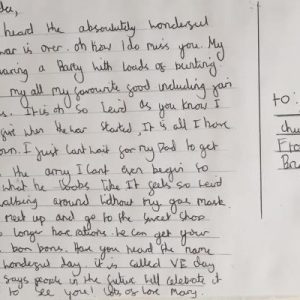 heard the absolutely wonderful
war is over. oh how I do miss you. My
having a Party with loads of bunting
my all my favourite good including jam
It is oh so weird as you know I
five when the war started. It is all I have
I just cant wait for my Dad to get
the army I cant even begin to
what he looks like It feels so weird
walking around without my gas mask.
meet up and go to the sweet shop
longer have rations. We can get your
bon bons. Have you heard the name
wonderful day it is called VE day
says people in the future will celebrate it
to see you! lots of love Mary
to: